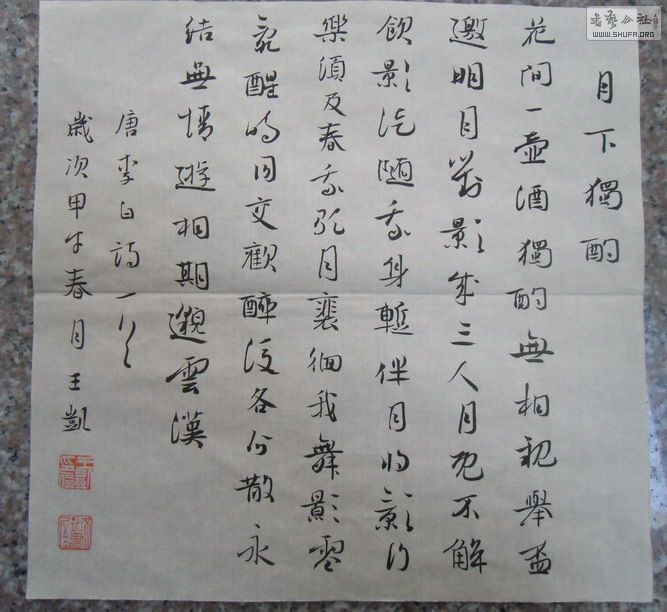 月下獨酌
花間一壺酒獨酌無相親舉盃
邀明月對影成三人月既不解
飲影徒隨我身暫伴月將影行
樂須及春我歌月裴徊我舞影零
亂醒時同交歡醉後各分散永
結無情遊相期邈雲漢
唐李白詩一首
歲次甲午春月王凱
書藝公社
WWW.SHUFA.ORG